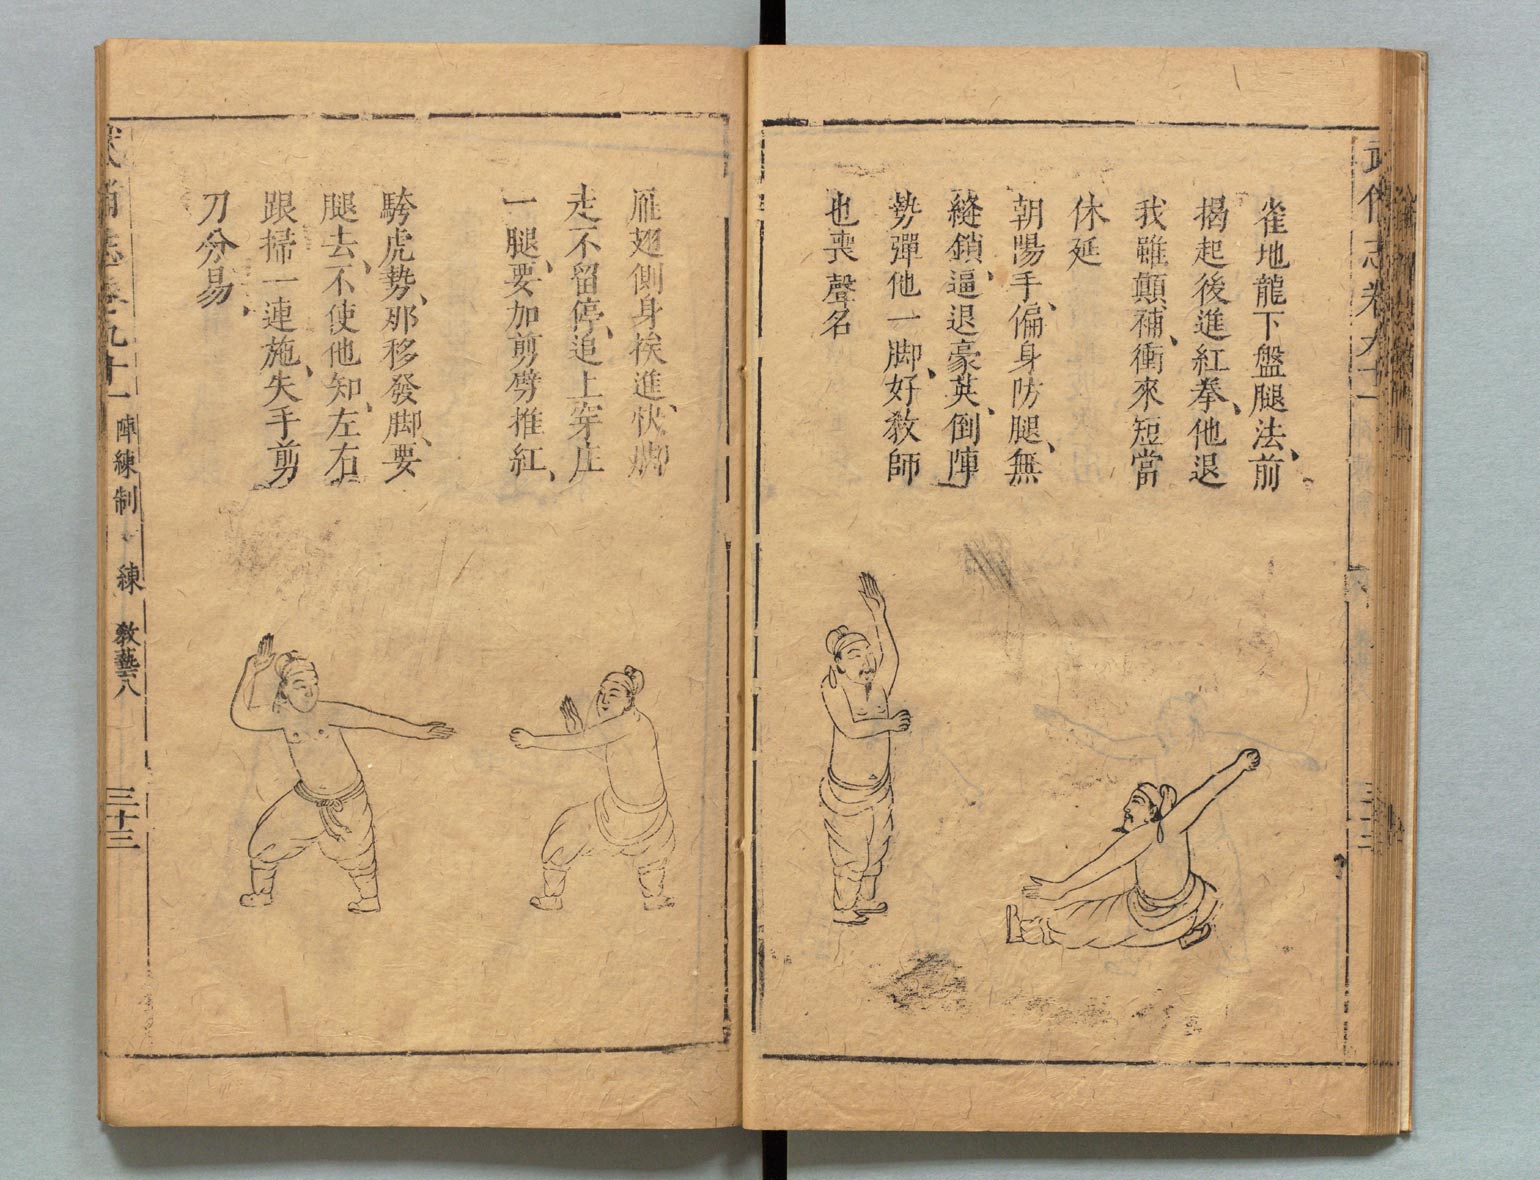 武備志卷九十一
雀地龍下盤腿法、前
揭起後進紅拳、他退
我雖顛補、衝來短當
休延
朝陽手、偏身防腿、無
縫鎖、逼退豪英、倒陣
勢彈他一脚、好教師
也喪聲名
雁翅側身挨進、快脚
走不留停、追上穿庄
一腿、要加剪劈推紅、
騎虎勢、那移發脚、要
腿去、不使他知、左右
跟掃一連施、失手剪
刀分易、
武備志卷九十一 陣練制 練 教藝八 三十三